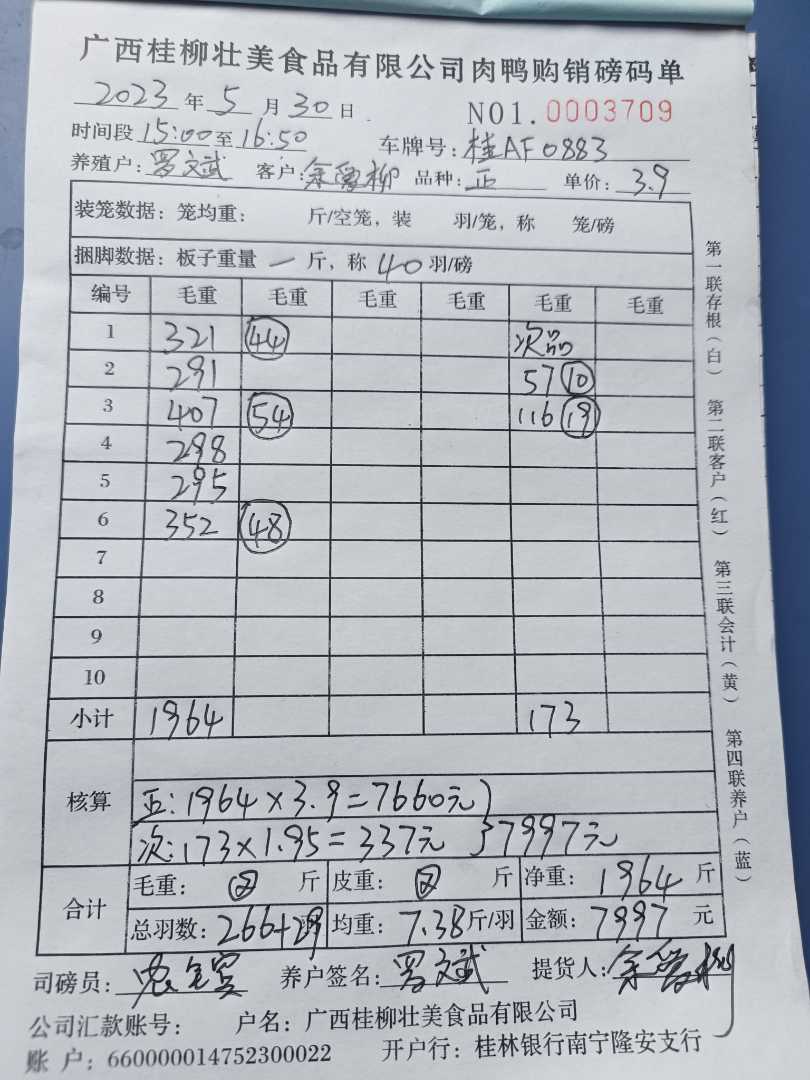 广西桂柳壮美食品有限公司肉鸭购销磅码单
2023年5月30日 NO1.0003709
时间段15:00至16:50 车牌号:桂AF0883
养殖户:罗文斌 客户:余 柳 品种:正 单价:3.9
装笼数据:笼均重: 斤/空笼,装 羽/笼,称 笼/磅
捆脚数据:板子重量 一 斤,称 40 羽/磅
编号 毛重 毛重 毛重 毛重 毛重 毛重
1 321 44 次品
2 291 57 10
3 407 54 116 19
4 298
5 295
6 352 48
7
8
9
10
小计 1964 173
核算
正:1964×3.9=7660元
次:173×1.95=337元 }7997元
合计
毛重: 斤 皮重: 斤 净重:1964斤
总羽数:266+29 均重:7.38斤/羽 金额:7997元
司磅员: 养户签名:罗文斌 提货人:余 柳
公司汇款账号: 户名:广西桂柳壮美食品有限公司
账 户:660000014752300022 开户行:桂林银行南宁隆安支行
第一联存根(白) 第二联客户(红) 第三联会计(黄) 第四联养户(蓝)